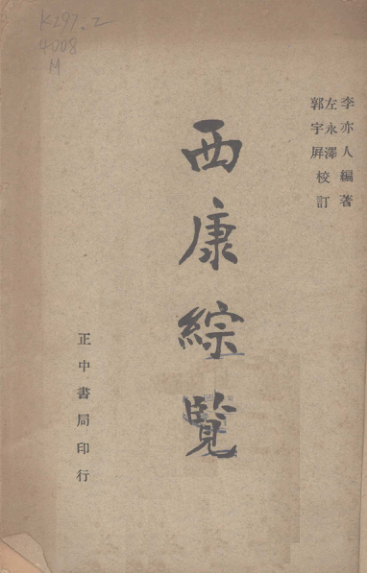 K297.2
4008
M
李亦人編著
左永澤
郭宇屏校訂
西康綜覽
正中書局印行